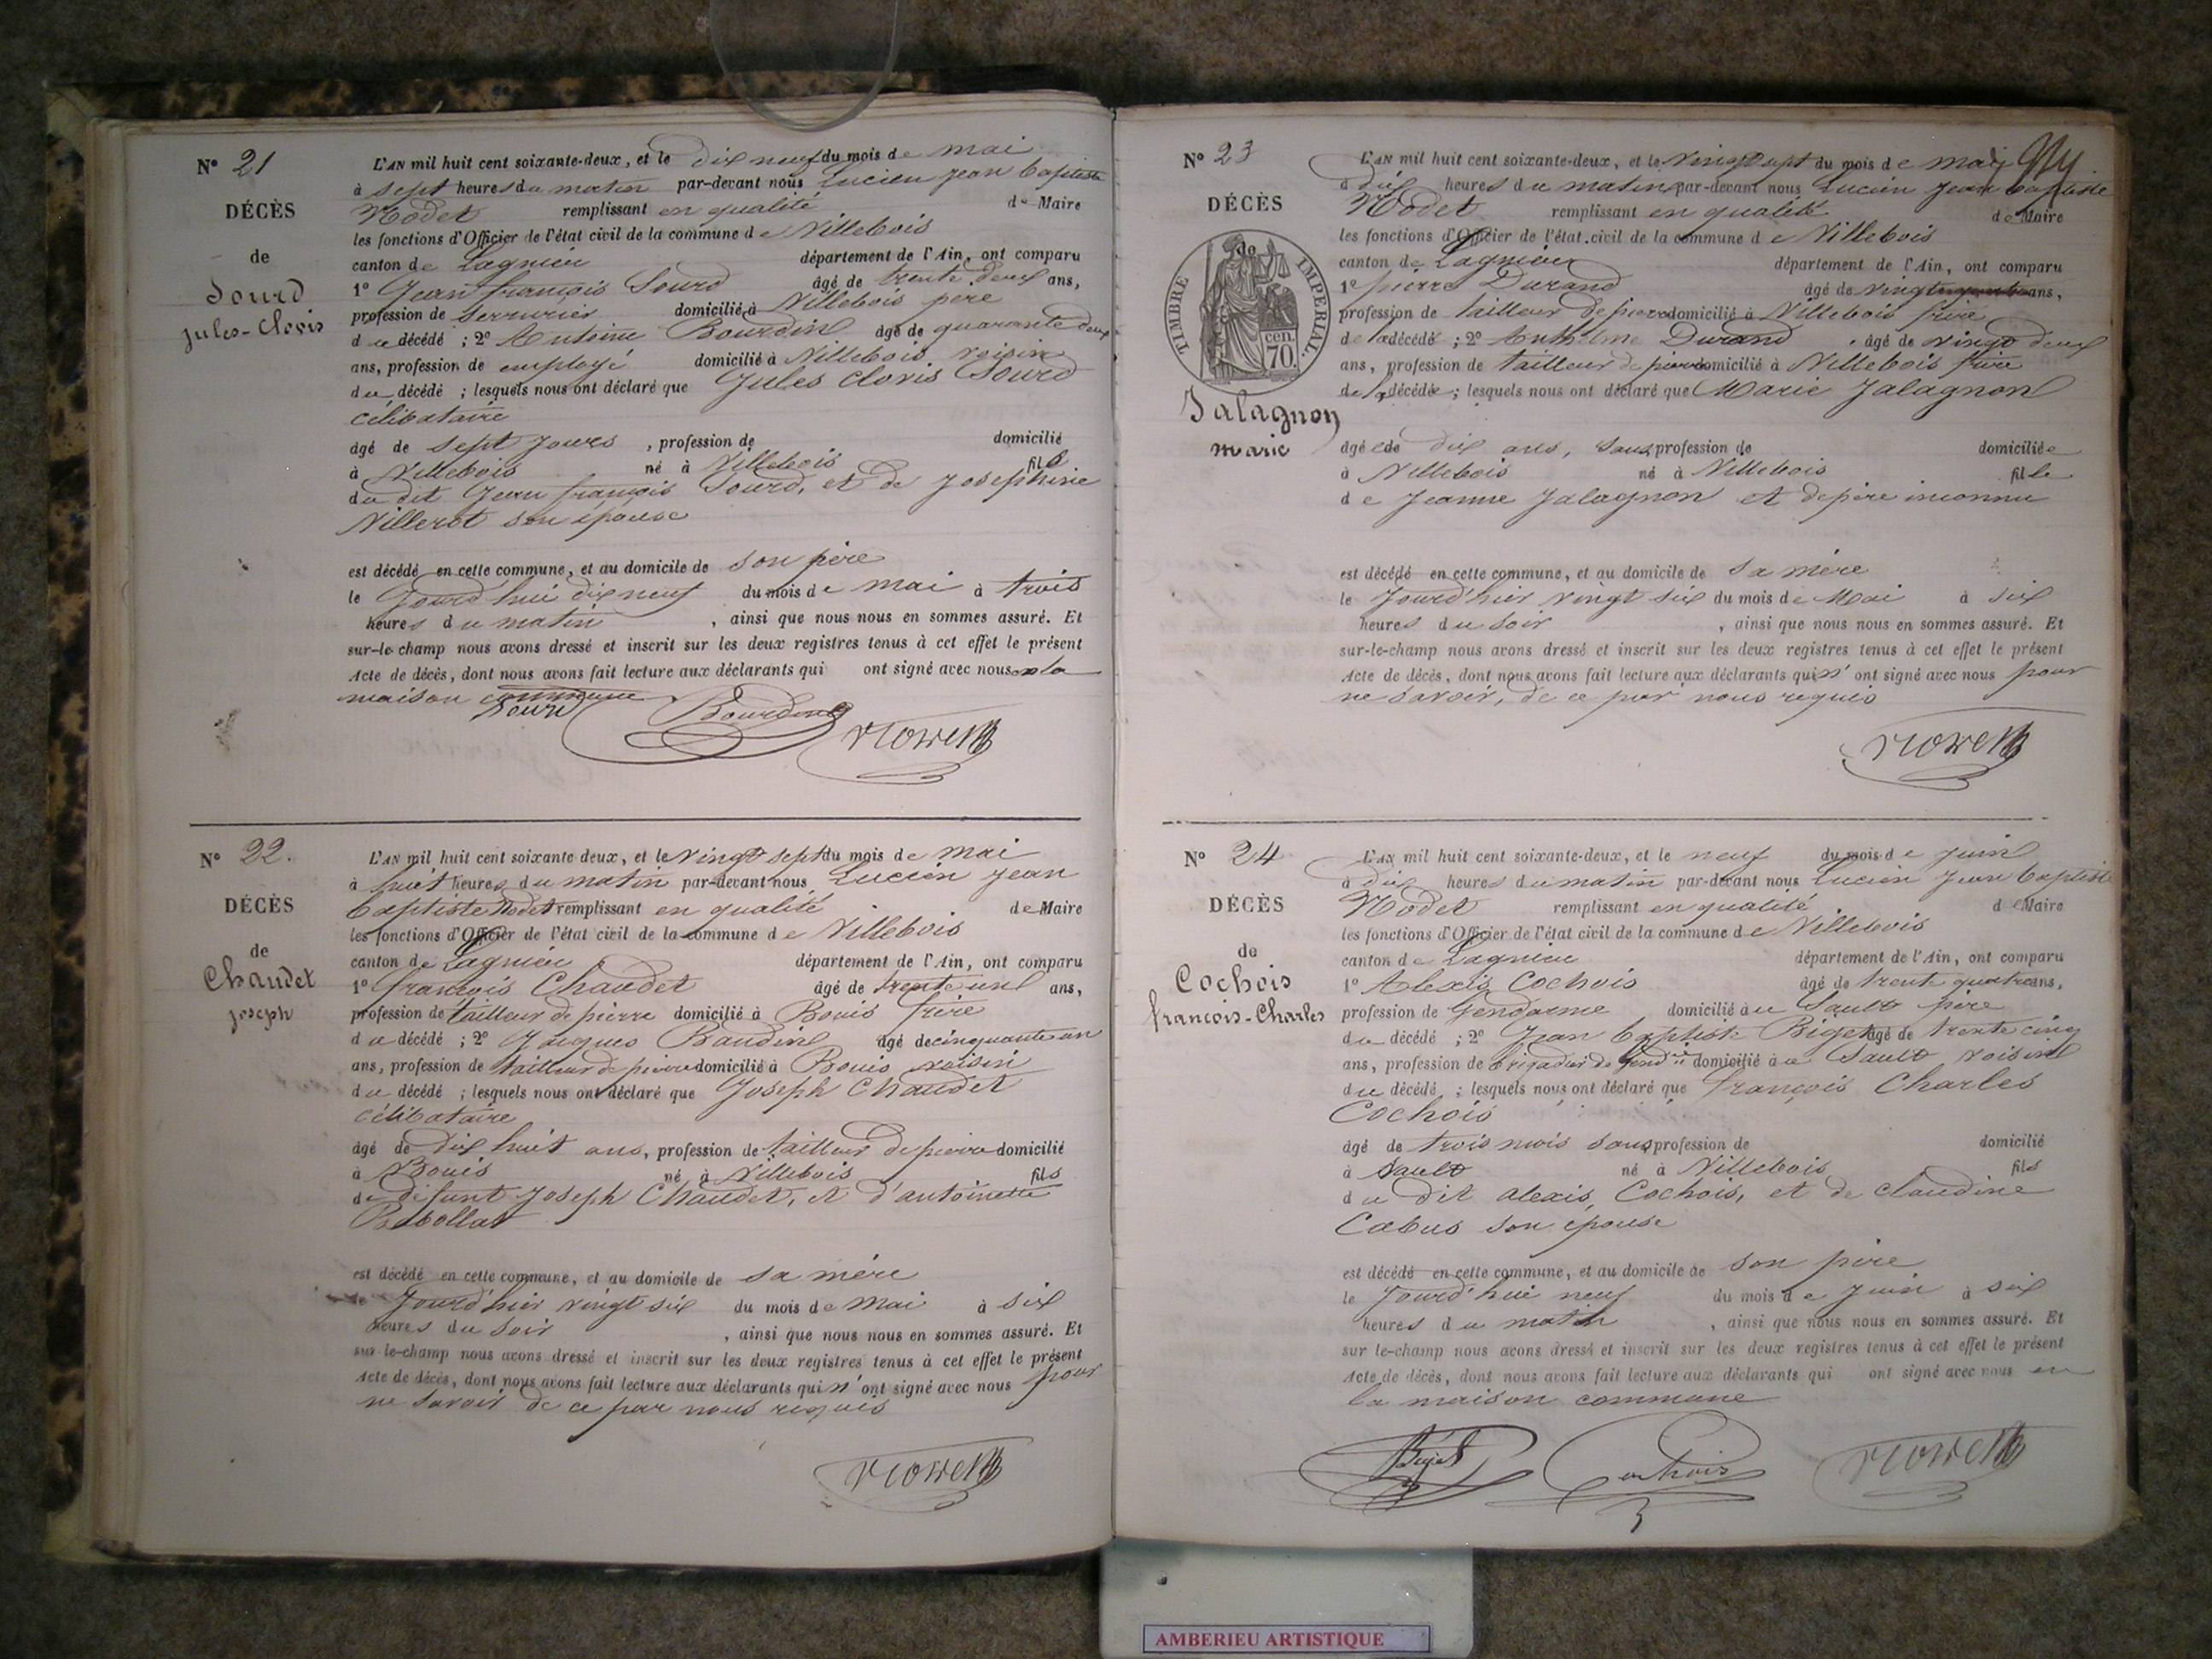 N° 21
DÉCÈS
de
Sourd
Jules-Clovis
L'AN mil huit cent soixante-deux, et le dix neuf du mois de mai
à sept heures du matin par-devant nous Lucien Jean baptiste
Nodet remplissant en qualité de Maire
les fonctions d'Officier de l'état civil de la commune de Villebois
canton de Lagnieu département de l'Ain, ont comparu
1° Jean françois Sourd âgé de trente deux ans,
profession de Serrurier domicilié à Villebois père
du décédé ; 2° Antoine Bourdin âgé de quarante deux
ans, profession de employé domicilié à Villebois, voisin
du décédé ; lesquels nous ont déclaré que Jules Clovis Sourd
célibataire
âgé de sept jours , profession de domicilié
à Villebois né à Villebois fils
du dit Jean françois Sourd, et de Josephine
Villerot son épouse
est décédé en cette commune, et au domicile de son père
le Jourd'hui dix neuf du mois de mai à trois
heures du matin , ainsi que nous nous en sommes assuré. Et
sur-le champ nous avons dressé et inscrit sur les deux registres tenus à cet effet le présent
Acte de décès, dont nous avons fait lecture aux déclarants qui ont signé avec nous en la
maison commune
Sourd Bourdin
N° 22.
DÉCÈS
de
Chaudet
joseph
L'AN mil huit cent soixante-deux, et le vingt sept du mois de mai
à huit heures du matin par-devant nous Lucien Jean
baptiste Nodet remplissant en qualité de Maire
les fonctions d'Officier de l'état civil de la commune de Villebois
canton de Lagnieu département de l'Ain, ont comparu
1° françois Chaudet âgé de trente un ans,
profession de tailleur de pierre domicilié à Bouis frère
du décédé ; 2° Jacques Baudin âgé de cinquante un
ans, profession de tailleur de pierre domicilié à Bouis voisin
du décédé ; lesquels nous ont déclaré que Joseph Chaudet
célibataire
âgé de dix huit ans, profession de tailleur de pierre domicilié
à Bouis né à Villebois fils
de défunt Joseph Chaudet, et d'antoinette
est décédé en cette commune, et au domicile de sa mère
le Jourd'hier vingt six du mois de mai à six
heures du soir , ainsi que nous nous en sommes assuré. Et
sur le-champ nous avons dressé et inscrit sur les deux registres tenus à cet effet le présent
Acte de décès, dont nous avons fait lecture aux déclarants qui n'ont signé avec nous pour
ne savoir de ce par nous requis
N° 23
DÉCÈS
de
TIMBRE IMPERIAL.
70. cen.
Jalagnon
marie
L'AN mil huit cent soixante-deux, et le vingt sept du mois de mai
à dix heures du matin par-devant nous Lucien Jean baptiste
Nodet remplissant en qualité de Maire
les fonctions d'Officier de l'état civil de la commune de Villebois
canton de Lagnieu département de l'Ain, ont comparu
1° pierre Durand âgé de ans,
profession de tailleur de pierre domicilié à Villebois frère
de la décédé ; 2° Anthelme Durand , âgé de vingt deux
ans, profession de tailleur de pierre domicilié à Villebois frère
de la décédée ; lesquels nous ont déclaré que Marie Jalagnon
âgée de dix ans, sans profession de domiciliée
à Villebois né à Villebois fille
de Jeanne Jalagnon et de père inconnu
est décédé en cette commune, et au domicile de sa mère
le Jourd'hier vingt six du mois de Mai à six
heures du soir , ainsi que nous nous en sommes assuré. Et
sur-le-champ nous avons dressé et inscrit sur les deux registres tenus à cet effet le présent
Acte de décès, dont nous avons fait lecture aux déclarants qui n'ont signé avec nous pour
ne savoir, de ce par nous requis
N° 24
DÉCÈS
de
Cochois
francois-Charles
L'AN mil huit cent soixante-deux, et le neuf du mois de juin
à dix heures du matin par-devant nous Lucien Jean baptiste
Nodet remplissant en qualité de Maire
les fonctions d'Officier de l'état civil de la commune de Villebois
canton de Lagnieu département de l'Ain, ont comparu
1° Alexis Cochois âgé de trente quatre ans,
profession de Gendarme domicilié au Sault père
du décédé ; 2° Jean baptiste Biget âgé de trente cinq
ans, profession de brigadier de gend.rie domicilié à u Sault voisin
du décédé ; lesquels nous ont déclaré que françois Charles
Cochois
âgé de trois mois sans profession de domicilié
à Sault né à Villebois fils
du dit alexis, Cochois, et de Claudine
Cabus son épouse
est décédé en cette commune, et au domicile de son père
le Jourd'hui neuf du mois de Juin à six
heures du matin , ainsi que nous nous en sommes assuré. Et
sur le-champ nous avons dressé et inscrit sur les deux registres tenus à cet effet le présent
Acte de décès, dont nous avons fait lecture aux déclarants qui ont signé avec nous en
la maison commune
Biget Cochois
AMBERIEU ARTISTIQUE